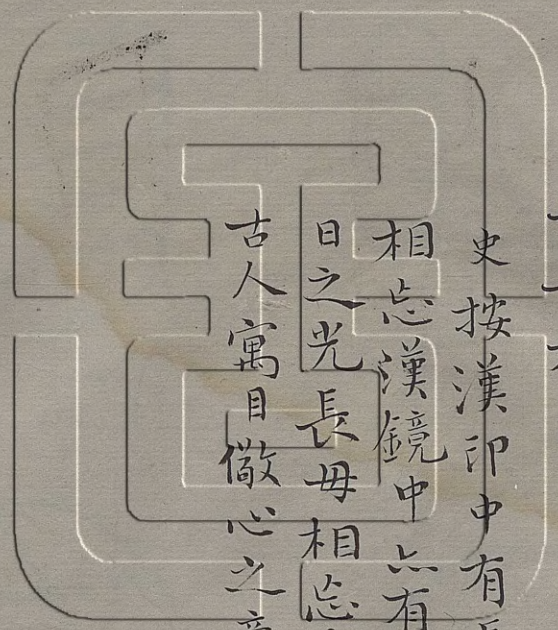 史按漢印中有
相忘漢鏡中亦有
日之光長毋相忘
古人寓目儆心之意